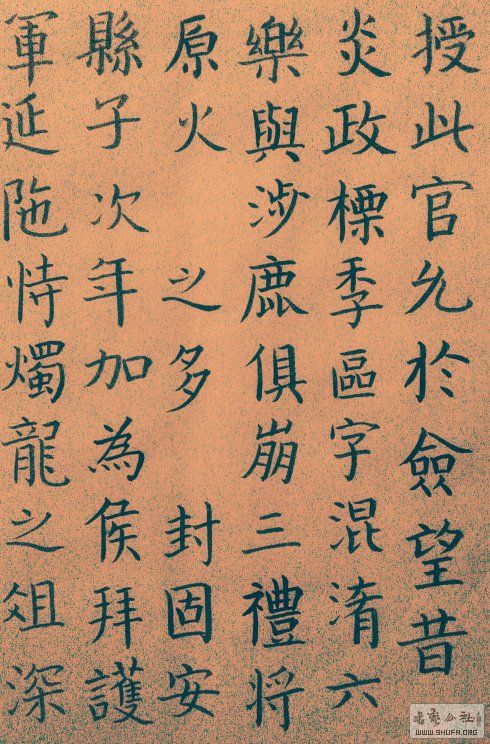 授此官允於僉望昔
炎政標季區字混淆六
樂與涉鹿俱崩三禮將
原火之多封固安
縣子次年加為侯拜護
軍延陁恃燭龍之俎深
WWW.SHUFA.ORG